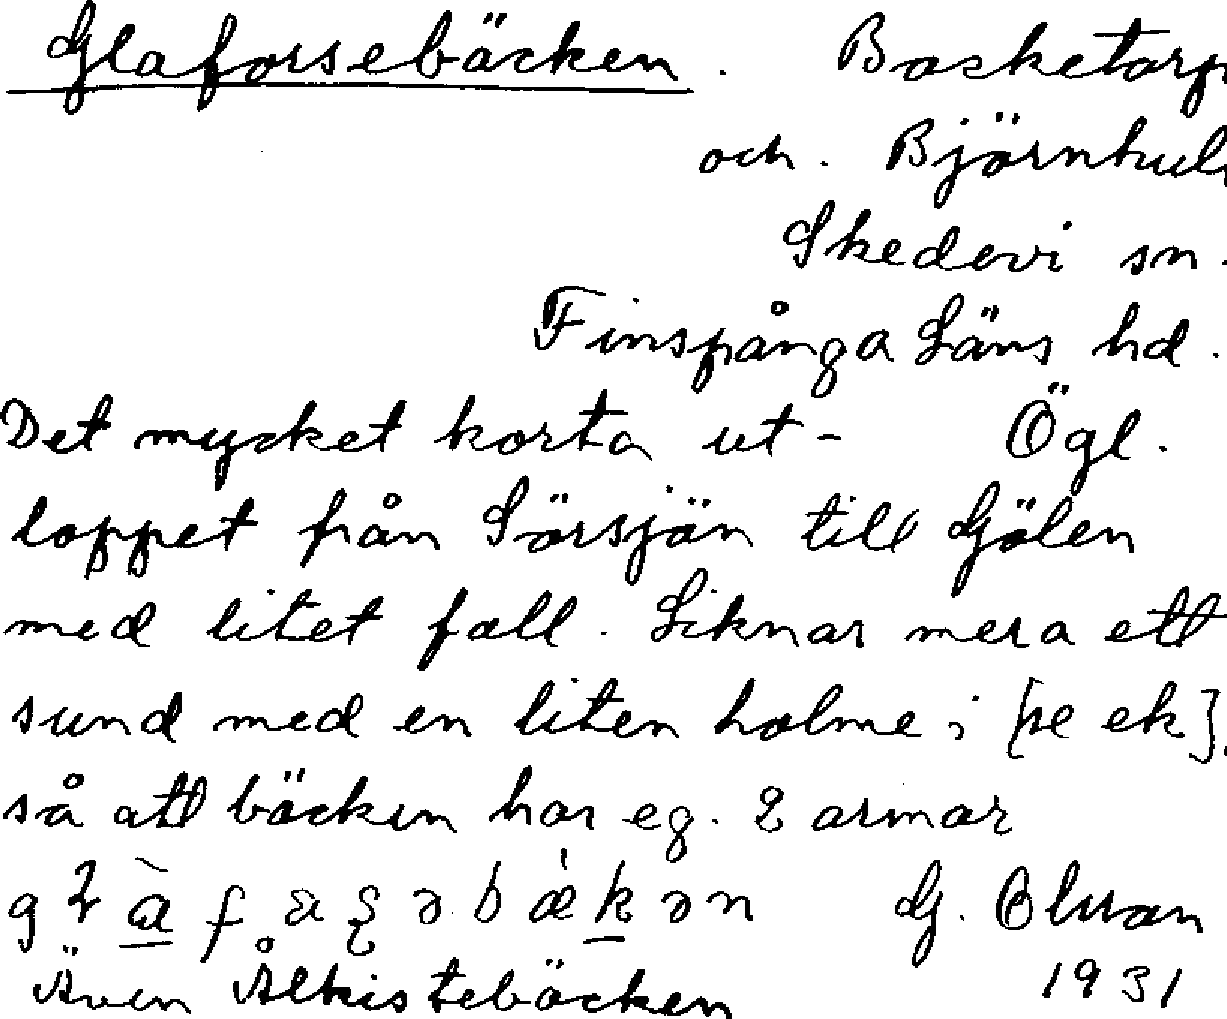 Glaforsebäcken. Basketorp
och. Björnhult
Skedevi sn.
Finspånga Läns hd.
Det mycket korta ut- Ögl.
loppet från Sörsjön till Gölen
med litet fall. Liknar mera ett
sund med en liten holme i [se ek].
så att bäcken har eg. 2 armar
G. Olsson
Även Ålkistebäcken 1931